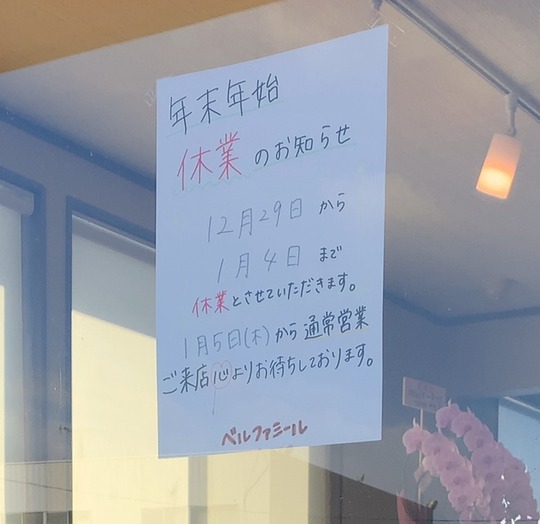 年末年始
休業のお知らせ
12月29日から
1月4日まで
休業とさせていただきます。
1月5日(木)から通常営業
ご来店心よりお待ちしております。
ベルファミール